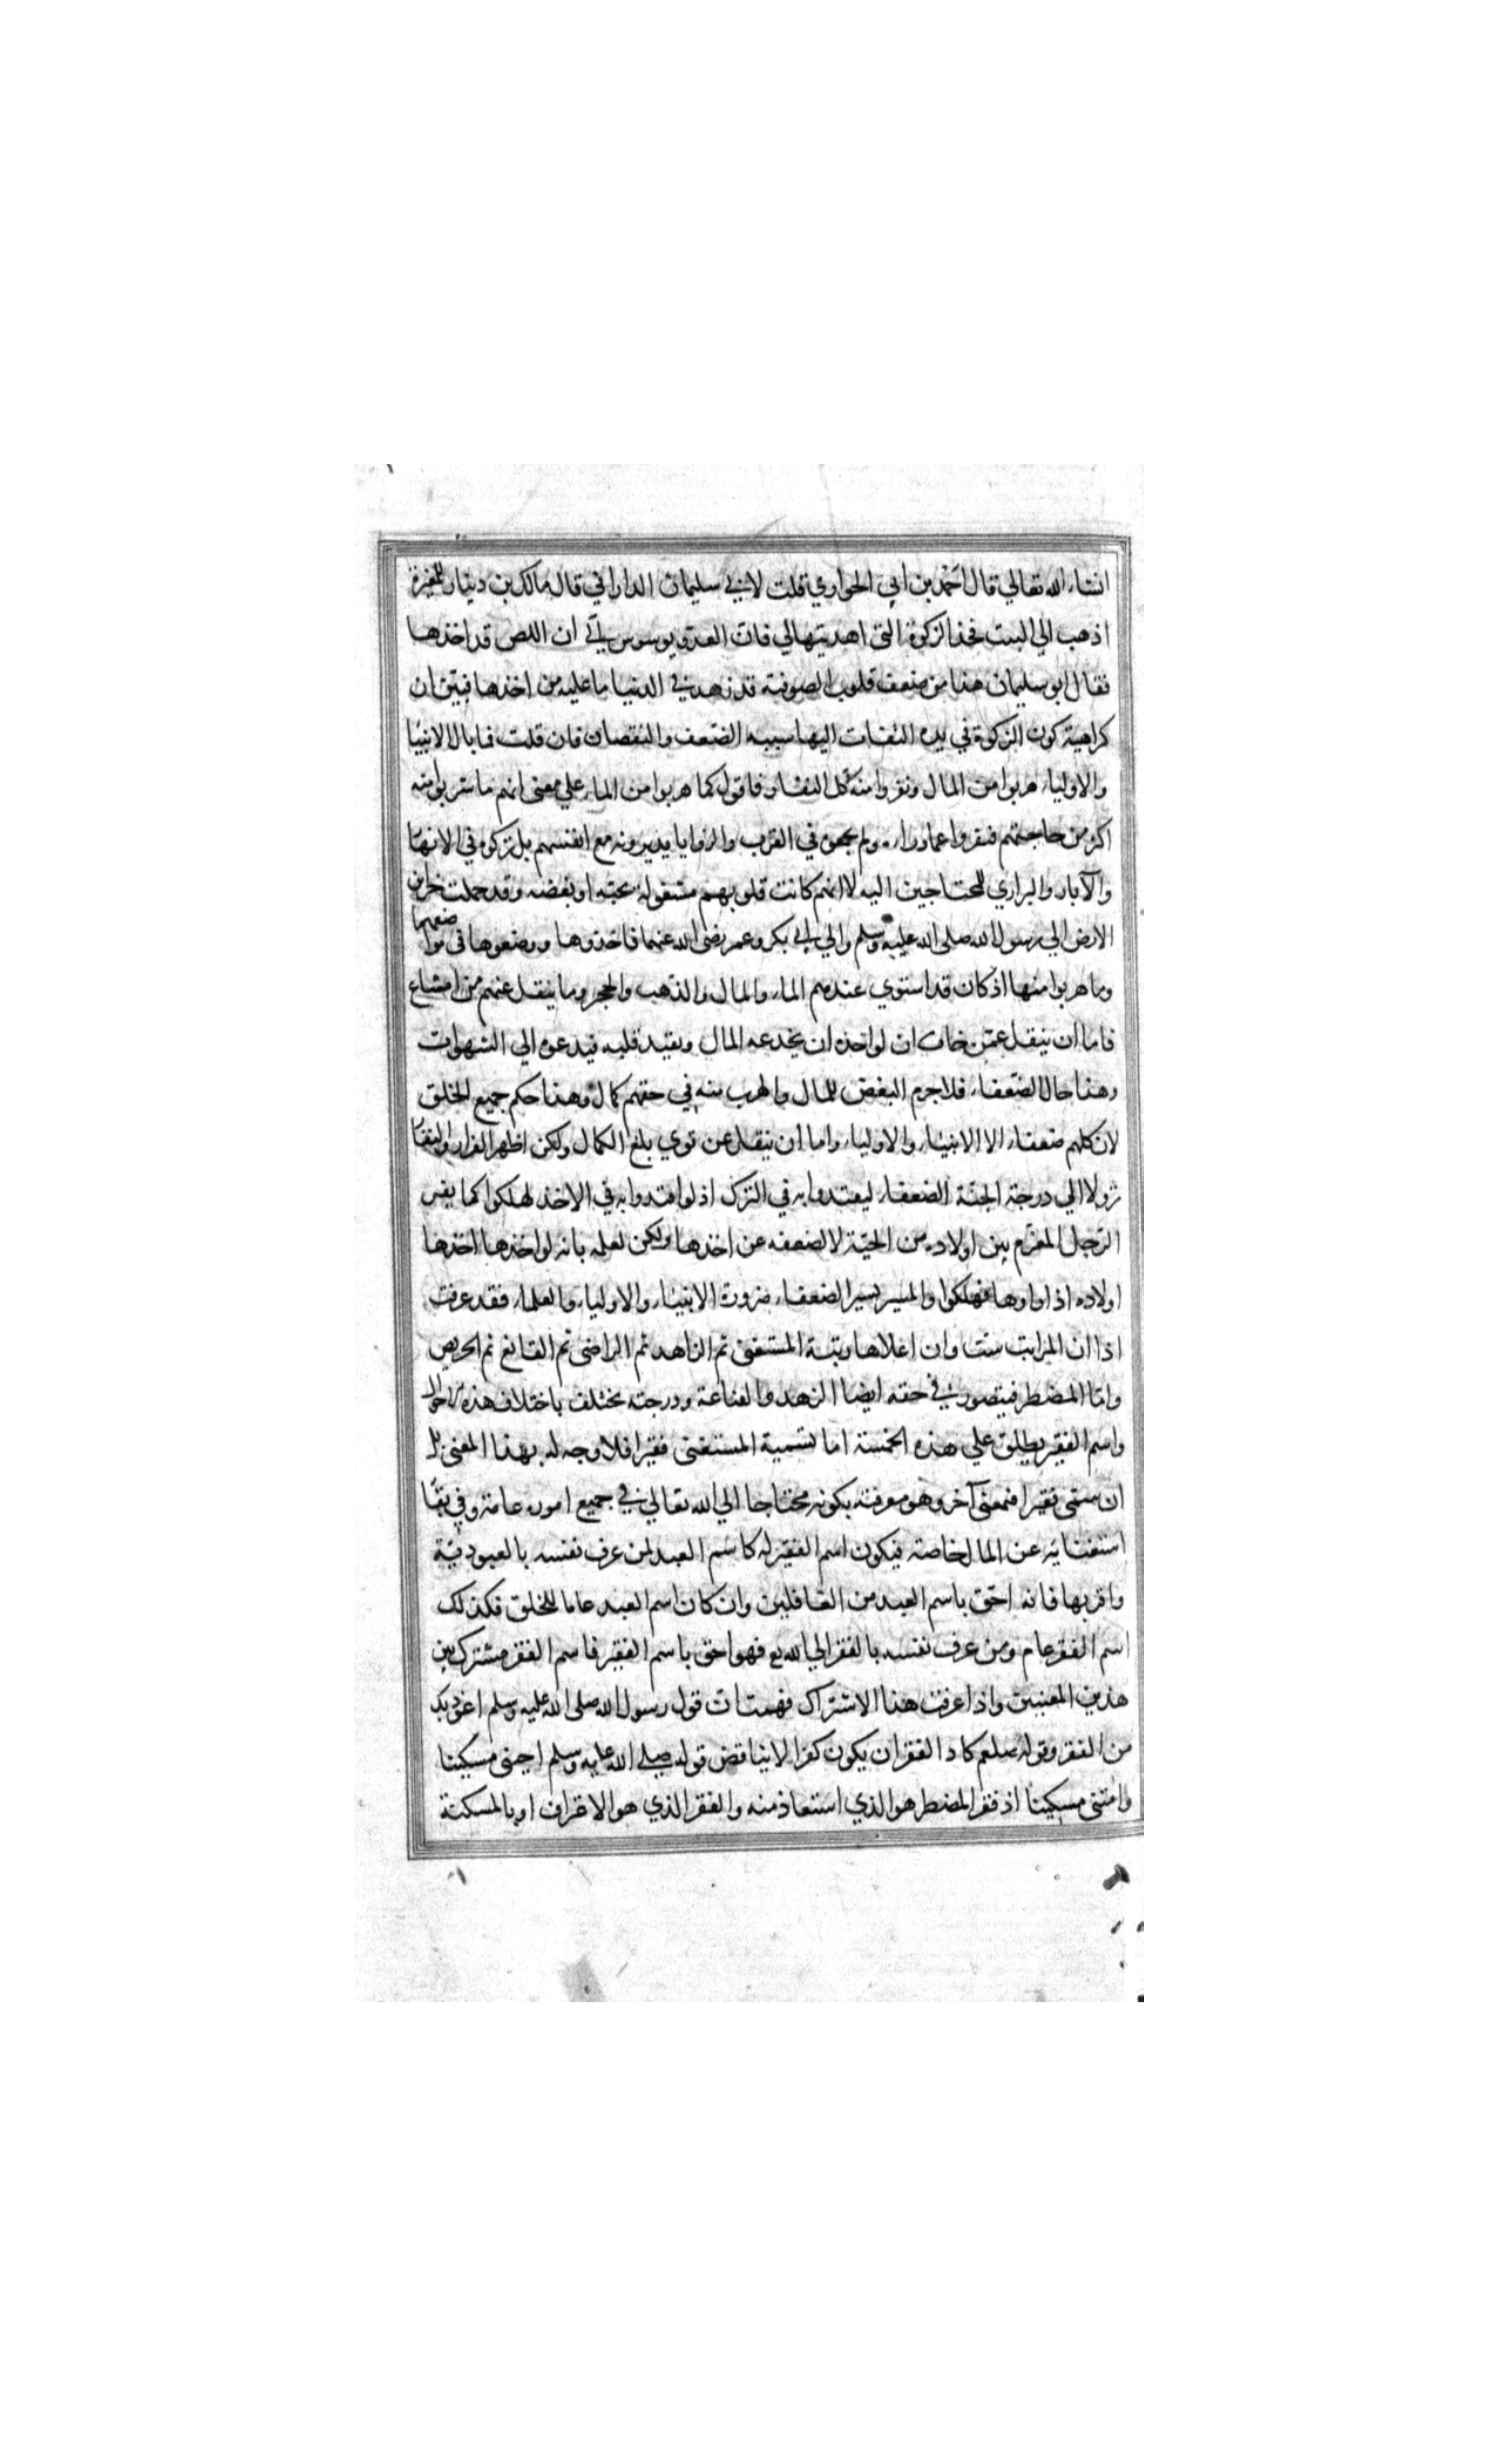 انشاء الله تعالي قال احمد بن ابي الحواري قلت لابي سليمان الداراني قال مالك بن دينار للمغيرة
اذهب الي البيت فخذ الزكوة التي اهديتها لي فان العدو يوسوس لي ان اللص قد اخذها
فقال ابو سليمان هذا من ضعف قلوب الصوفية قد زهد في الدنيا ما عليه من اخذها فبين ان
كراهية كون الزكوة في بيته التفات اليها سببه الضعف والنقصان فان قلت فما بال الانبيا
والاولياء هربوا من المال ونفروا منه كل النفار فاقول كما هربوا من الماء علي معنى انهم ما شربوا منه
اكثر من حاجتهم ففروا عما وراءه ولم يجمعوه في القرب والزوايا يديرونه مع انفسهم بل تركوه في الانهار
والآبار والبراري للمحتاجين اليه لا انهم كانت قلوبهم مشغولة بحبه او بغضه وقد حملت خزاين
الارض الي رسول الله صلى الله عليه وسلم والي ابي بكر وعمر رضى الله عنهما فاخذوها ووضعوها في مواضعها
وما هربوا منها اذ كان قد استوي عندهم الماء والمال والذهب والحجر وما ينقل عنهم من امتناع
فاما ان ينقل عمن خاف ان لو اخذه ان يخدعه المال ويقيد قلبه فيدعوه الي الشهوات
وهذا حال الضعفاء فلا جرم البغض للمال والهرب منه في حقهم كمال وهذا حكم جميع الخلق
لان كلهم ضعفاء الا الانبياء والاولياء واما ان ينقل عن قوي بلغ الكمال ولكن اظهر الفرار والنفار
نزولا الي درجة الجنة الضعفاء ليقتدوا به في الترك اذ لو اقتدوا به في الاخذ لهلكوا كما يفر
الرجل المعزم بين اولاده من الحية لا لضعفه عن اخذها ولكن لعلمه بانه لو اخذها اخذها
اولاده اذا راوها فهلكوا والمسير بسير الضعفاء ضرورة الانبياء والاولياء والعلماء فقد عرفت
اذا ان المراتب ست وان اعلاها رتبة المستغنى ثم الزاهد ثم الراضى ثم القانع ثم الحريص
واما المضطر فيتصور في حقه ايضا الزهد والقناعة ودرجته تختلف باختلاف هذه الاحوال
واسم الفقير يطلق علي هذه الخمسة اما تسمية المستغنى فقيرا فلا وجه له بهذا المعنى بل
ان سمى فقيرا فبمعنى آخر وهو معرفته بكونه محتاجا الي الله تعالي في جميع اموره عامة وفي بقا
استغنائه عن المال خاصة فيكون اسم الفقير له كاسم العبد لمن عرف نفسه بالعبودية
واقر بها فانه احق باسم العبد من الغافلين وان كان اسم العبد عاما للخلق فكذلك
اسم الفقر عام ومن عرف نفسه بالفقر الي الله تع فهو احق باسم الفقير فاسم الفقر مشترك بين
هذين المعنيين واذا عرفت هذا الاشتراك فهمت ان قول رسول الله صلى الله عليه وسلم اعوذ بك
من الفقر وقوله صلعم كاد الفقر ان يكون كفرا لا يناقض قوله صلي الله عليه وسلم احيني مسكينا
وامتنى مسكينا اذ فقر المضطر هو الذي استعاذ منه والفقر الذي هو الاعتراف او بالمسكنة